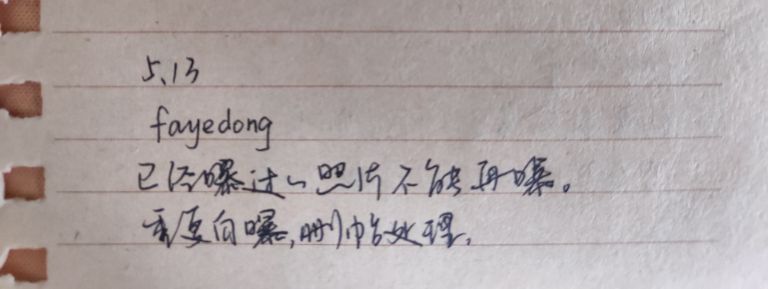 5.13
fayedong
已经曝过的照片不能再曝。
重复自曝,删帖处理。